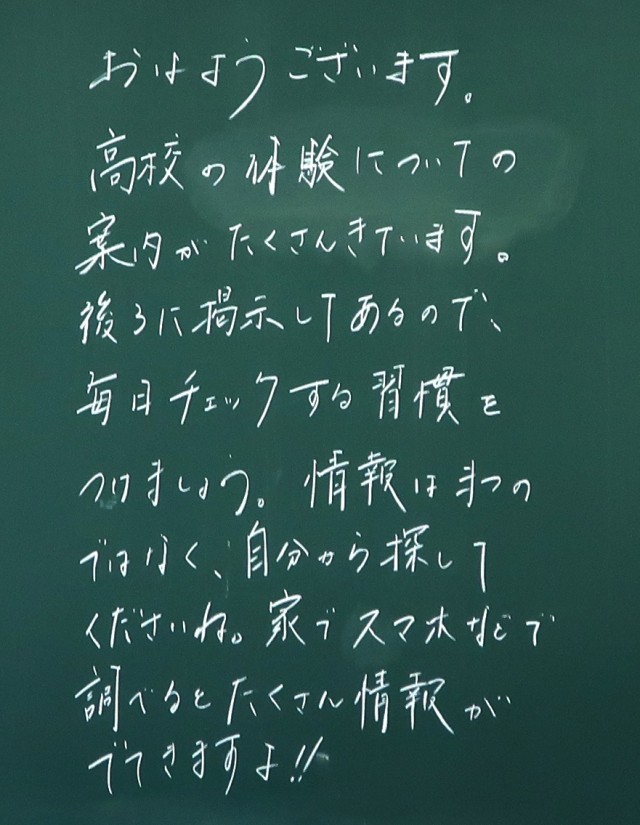 おはようございます。
高校の体験についての
案内がたくさんきています。
後ろに掲示してあるので、
毎日チェックする習慣を
つけましょう。情報はまつの
ではなく、自分から探して
くださいね。家でスマホなどで
調べるとたくさん情報が
でてきますよ!!